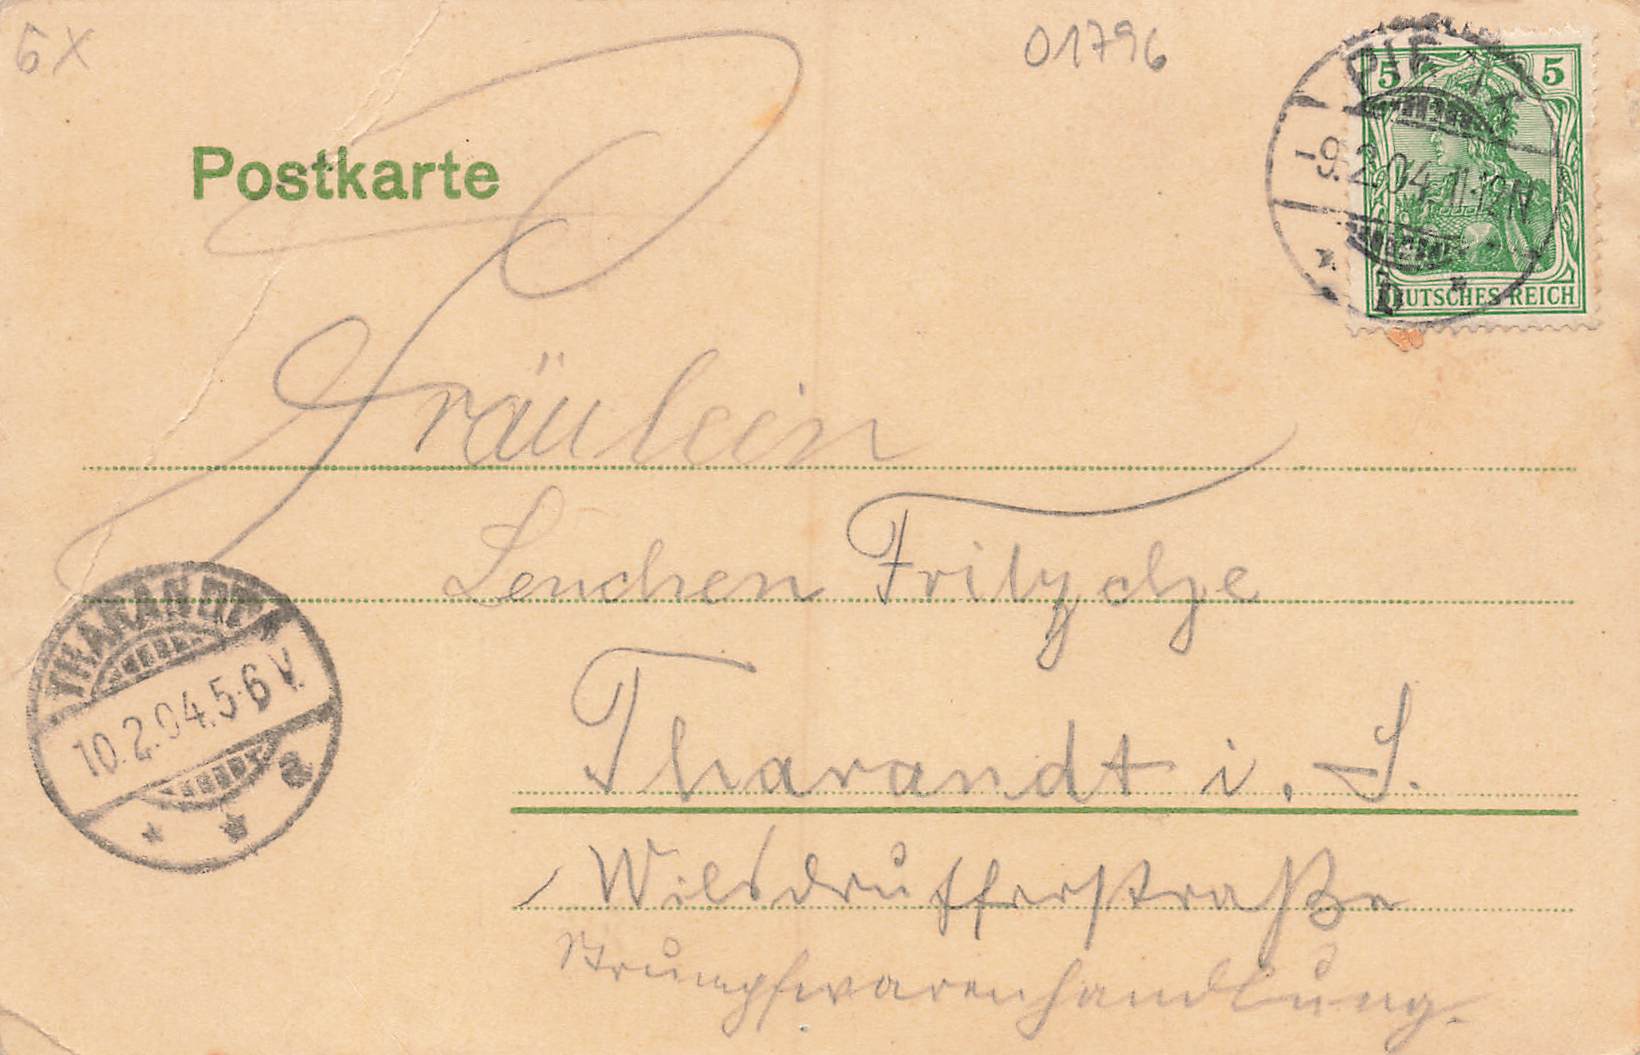 6X
01796
Postkarte
5 5
-9.2.04.11-12N
DEUTSCHES REICH
Fräulein
Lenchen Fritzsche
Tharandt i. S.
Wilsdrufferstraße
Strumpfwarenhandlung.
THARANDT
10.2.04.5-6V.
a